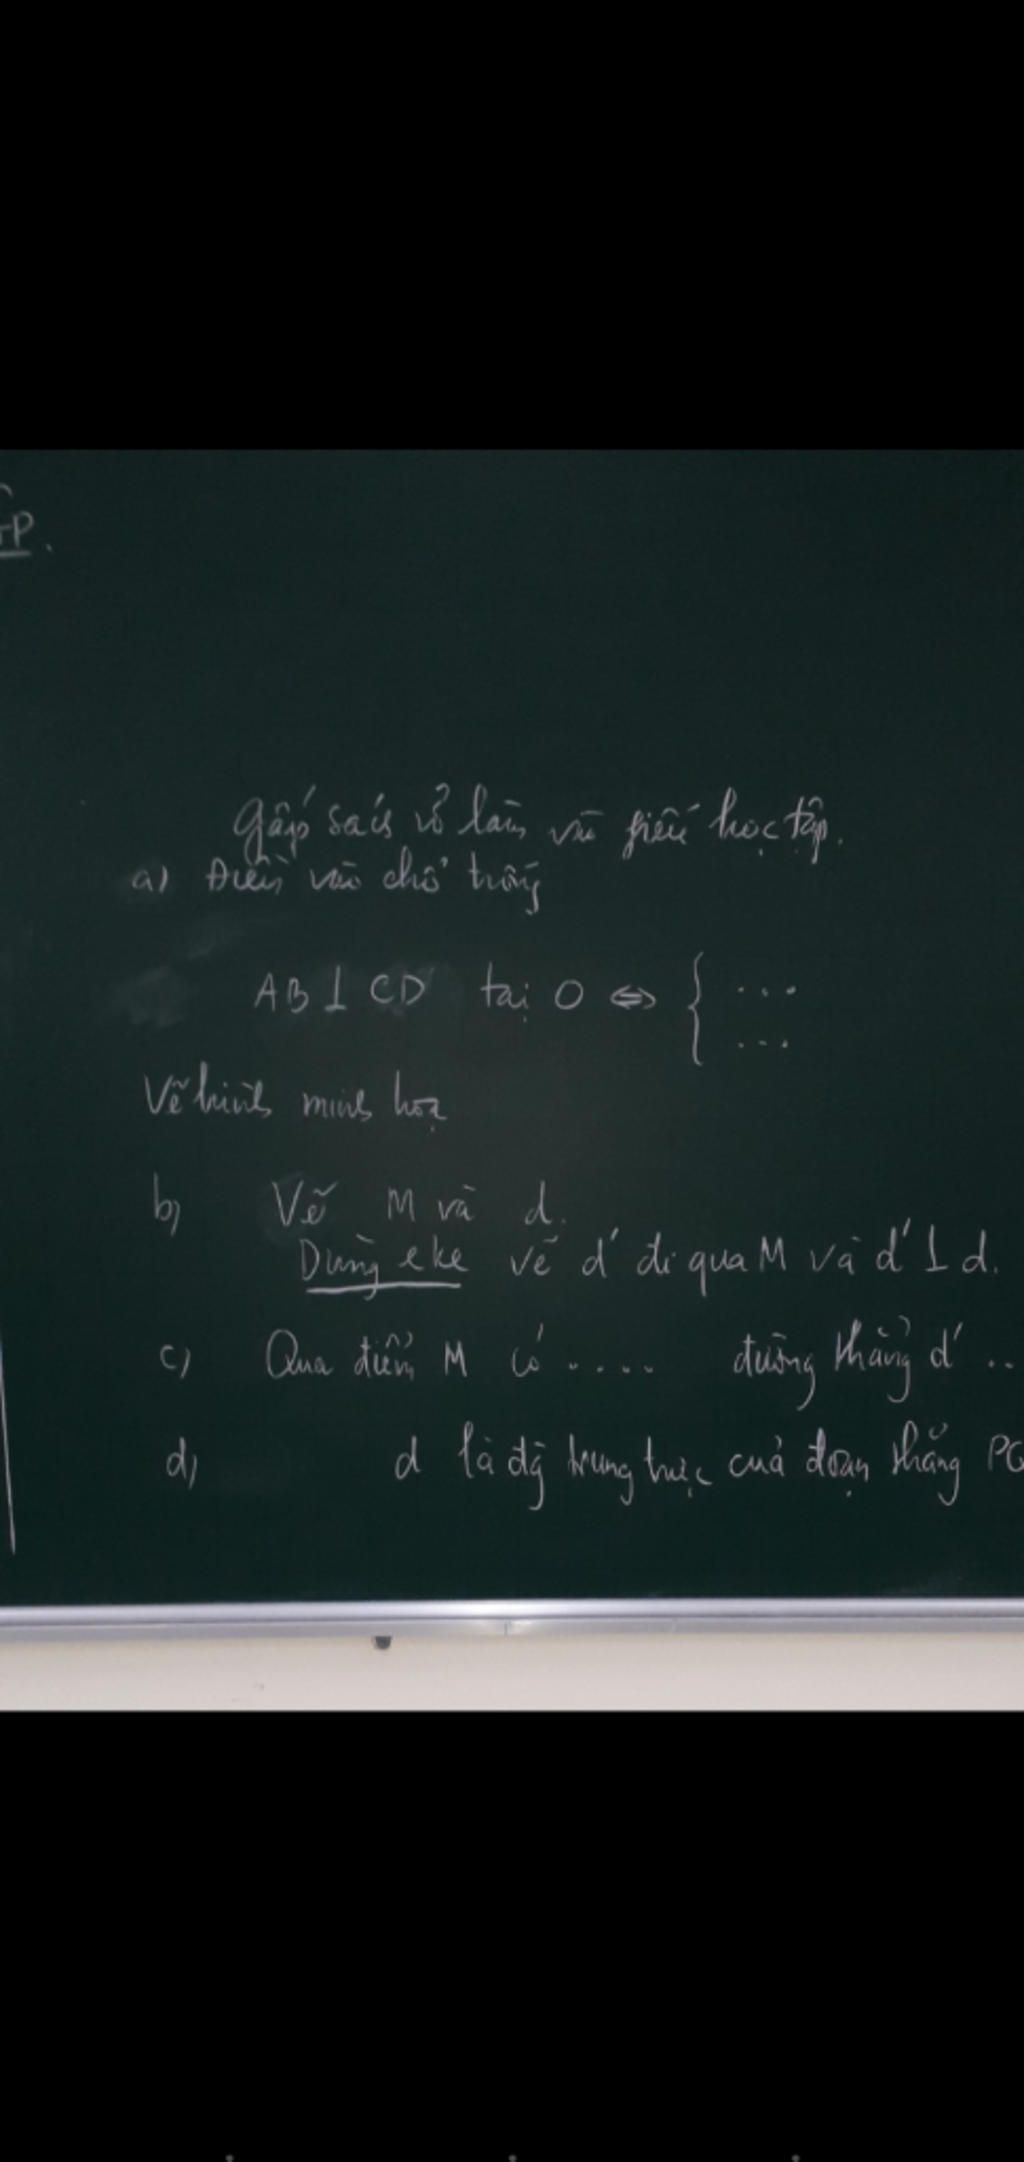 TP.
Gấp sách vở làm vào phiếu học tập.
a) Điền vào chỗ trống
AB ⊥ CD tại O ⇔ { ...
...
Vẽ hình minh hoạ
b) Vẽ M và d.
Dùng eke vẽ d' đi qua M và d' ⊥ d.
c) Qua điểm M có .... đường thẳng d' ..
d) d là đg trung trực của đoạn thẳng PQ